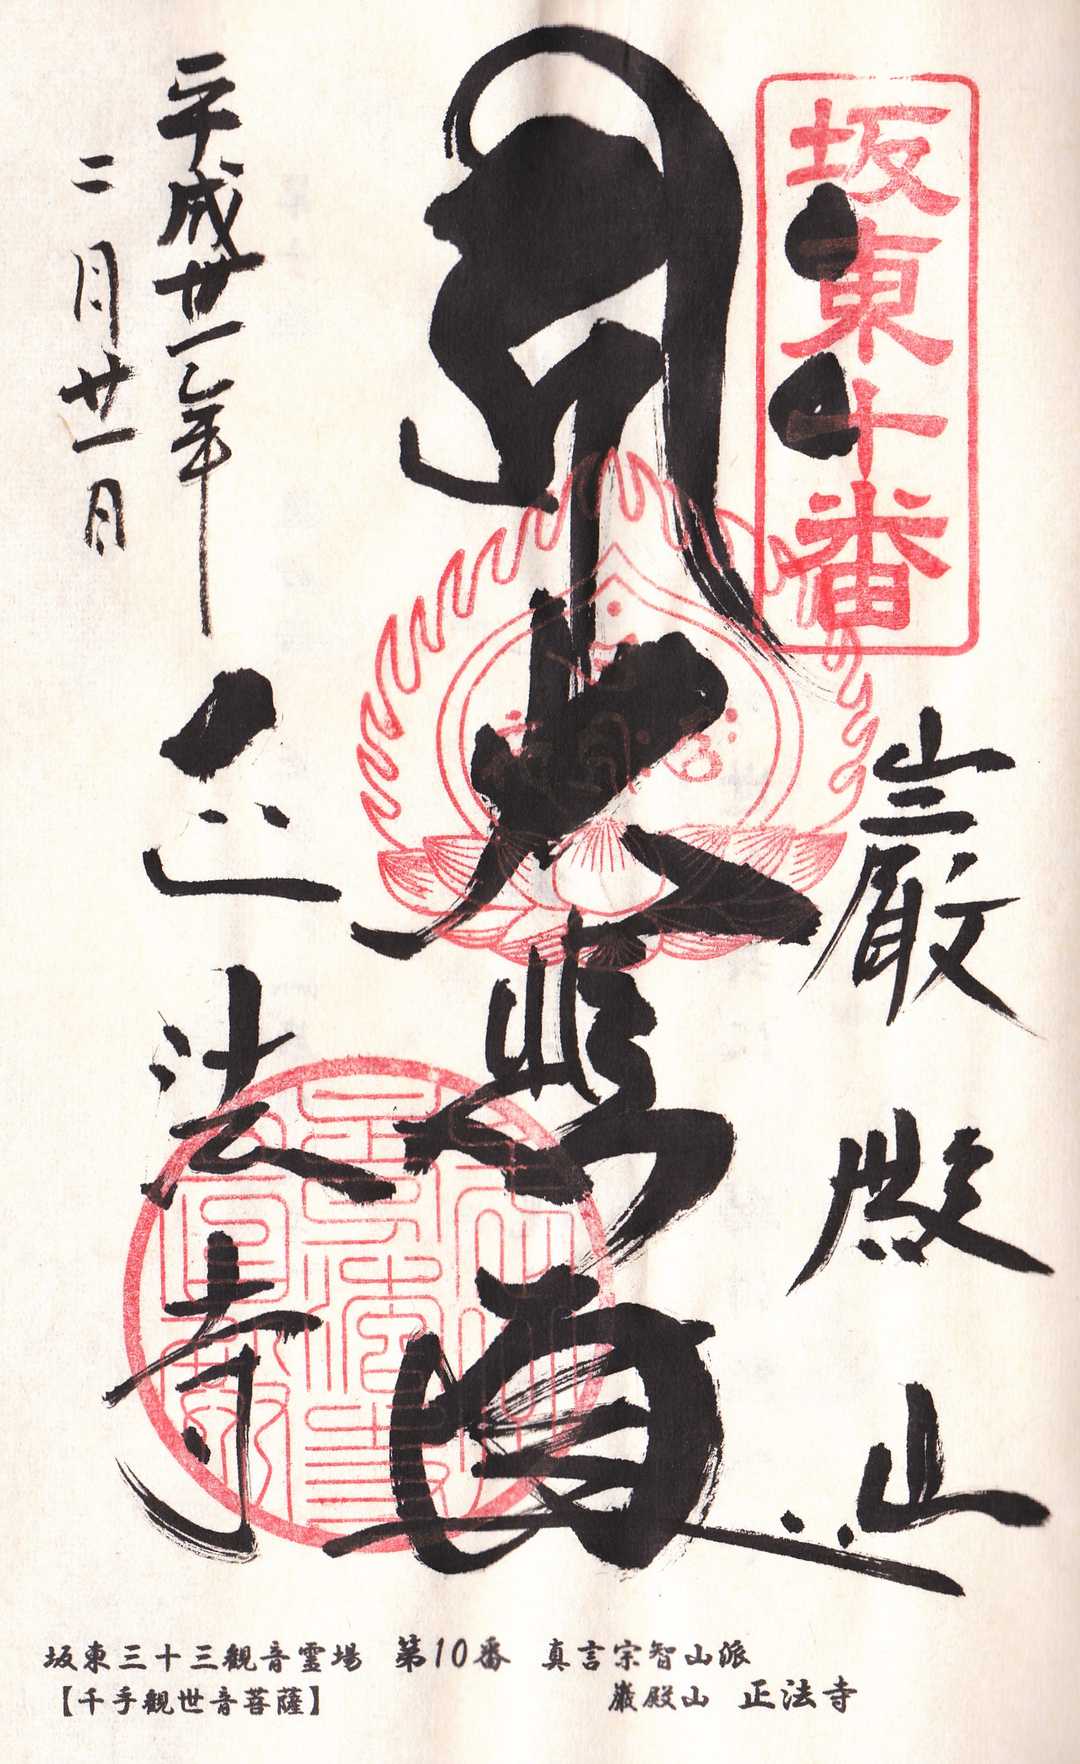 坂東十番
巖殿山
大悲
正法寺
平成卅一年
二月廿一日
坂東三十三観音霊場　第10番　真言宗智山派
【千手観世音菩薩】　巌殿山　正法寺